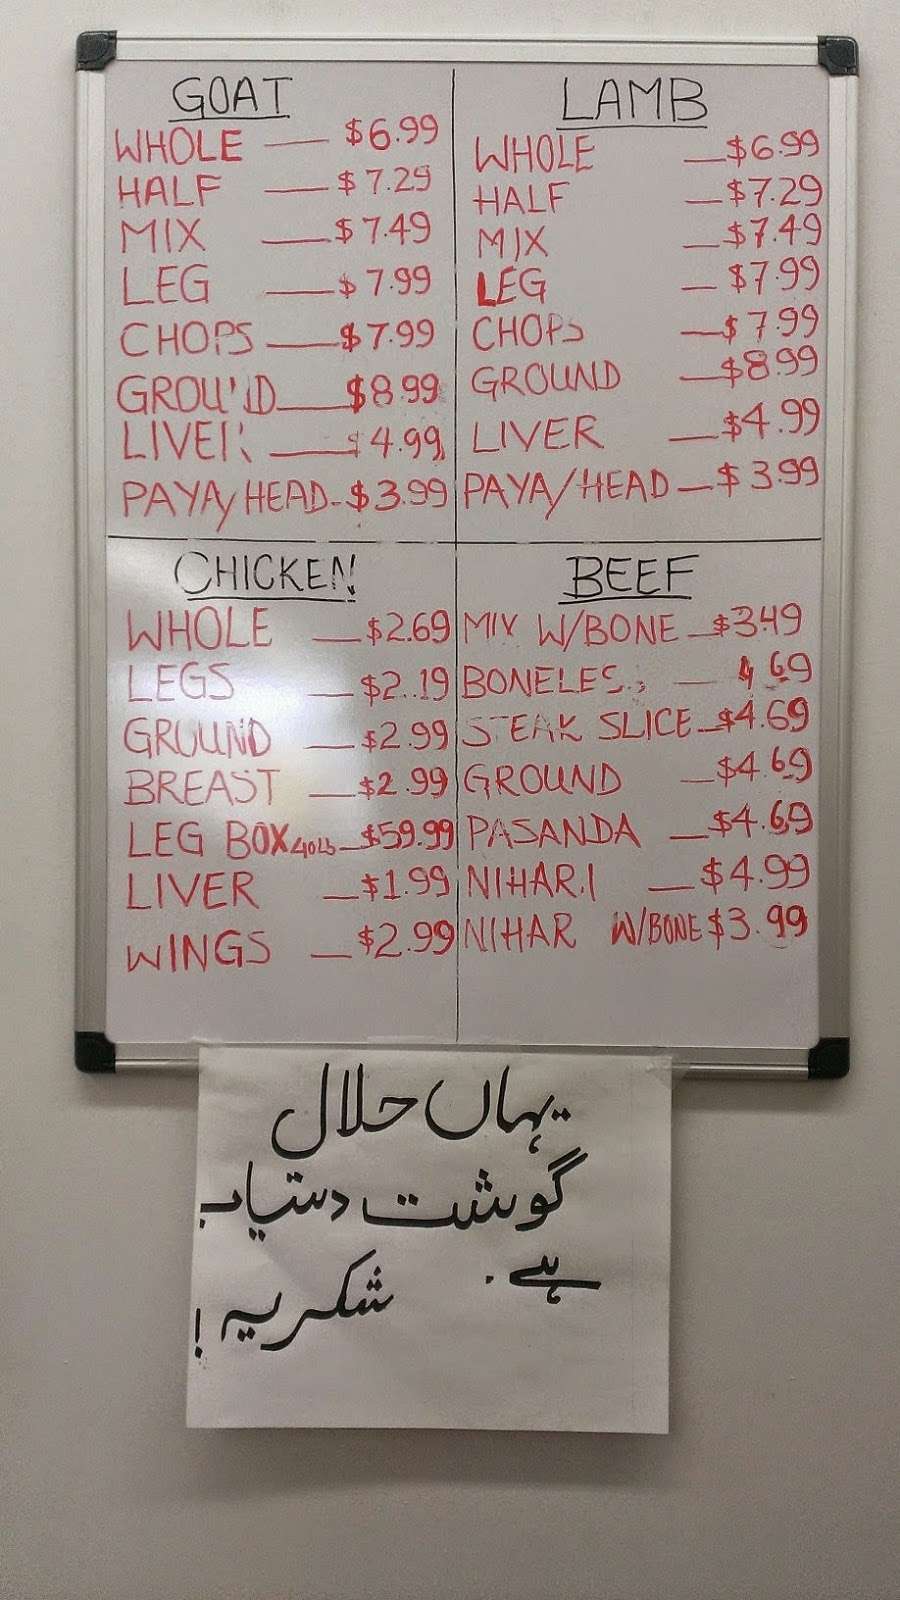 GOAT
WHOLE — $6.99
HALF — $7.29
MIX — $7.49
LEG — $7.99
CHOPS — $7.99
GROUND — $8.99
LIVER — $4.99
PAYA/HEAD - $3.99
LAMB
WHOLE — $6.99
HALF — $7.29
MIX — $7.49
LEG — $7.99
CHOPS — $7.99
GROUND — $8.99
LIVER — $4.99
PAYA/HEAD — $3.99
CHICKEN
WHOLE — $2.69
LEGS — $2.19
GROUND — $2.99
BREAST — $2.99
LEG BOX 40LB — $59.99
LIVER — $1.99
WINGS — $2.99
BEEF
MIX W/BONE — $3.49
BONELESS — 4.69
STEAK SLICE — $4.69
GROUND — $4.69
PASANDA — $4.69
NIHARI — $4.99
NIHAR W/BONE $3.99
یہاں حلال
گوشت دستیاب
ہے. شکریہ!